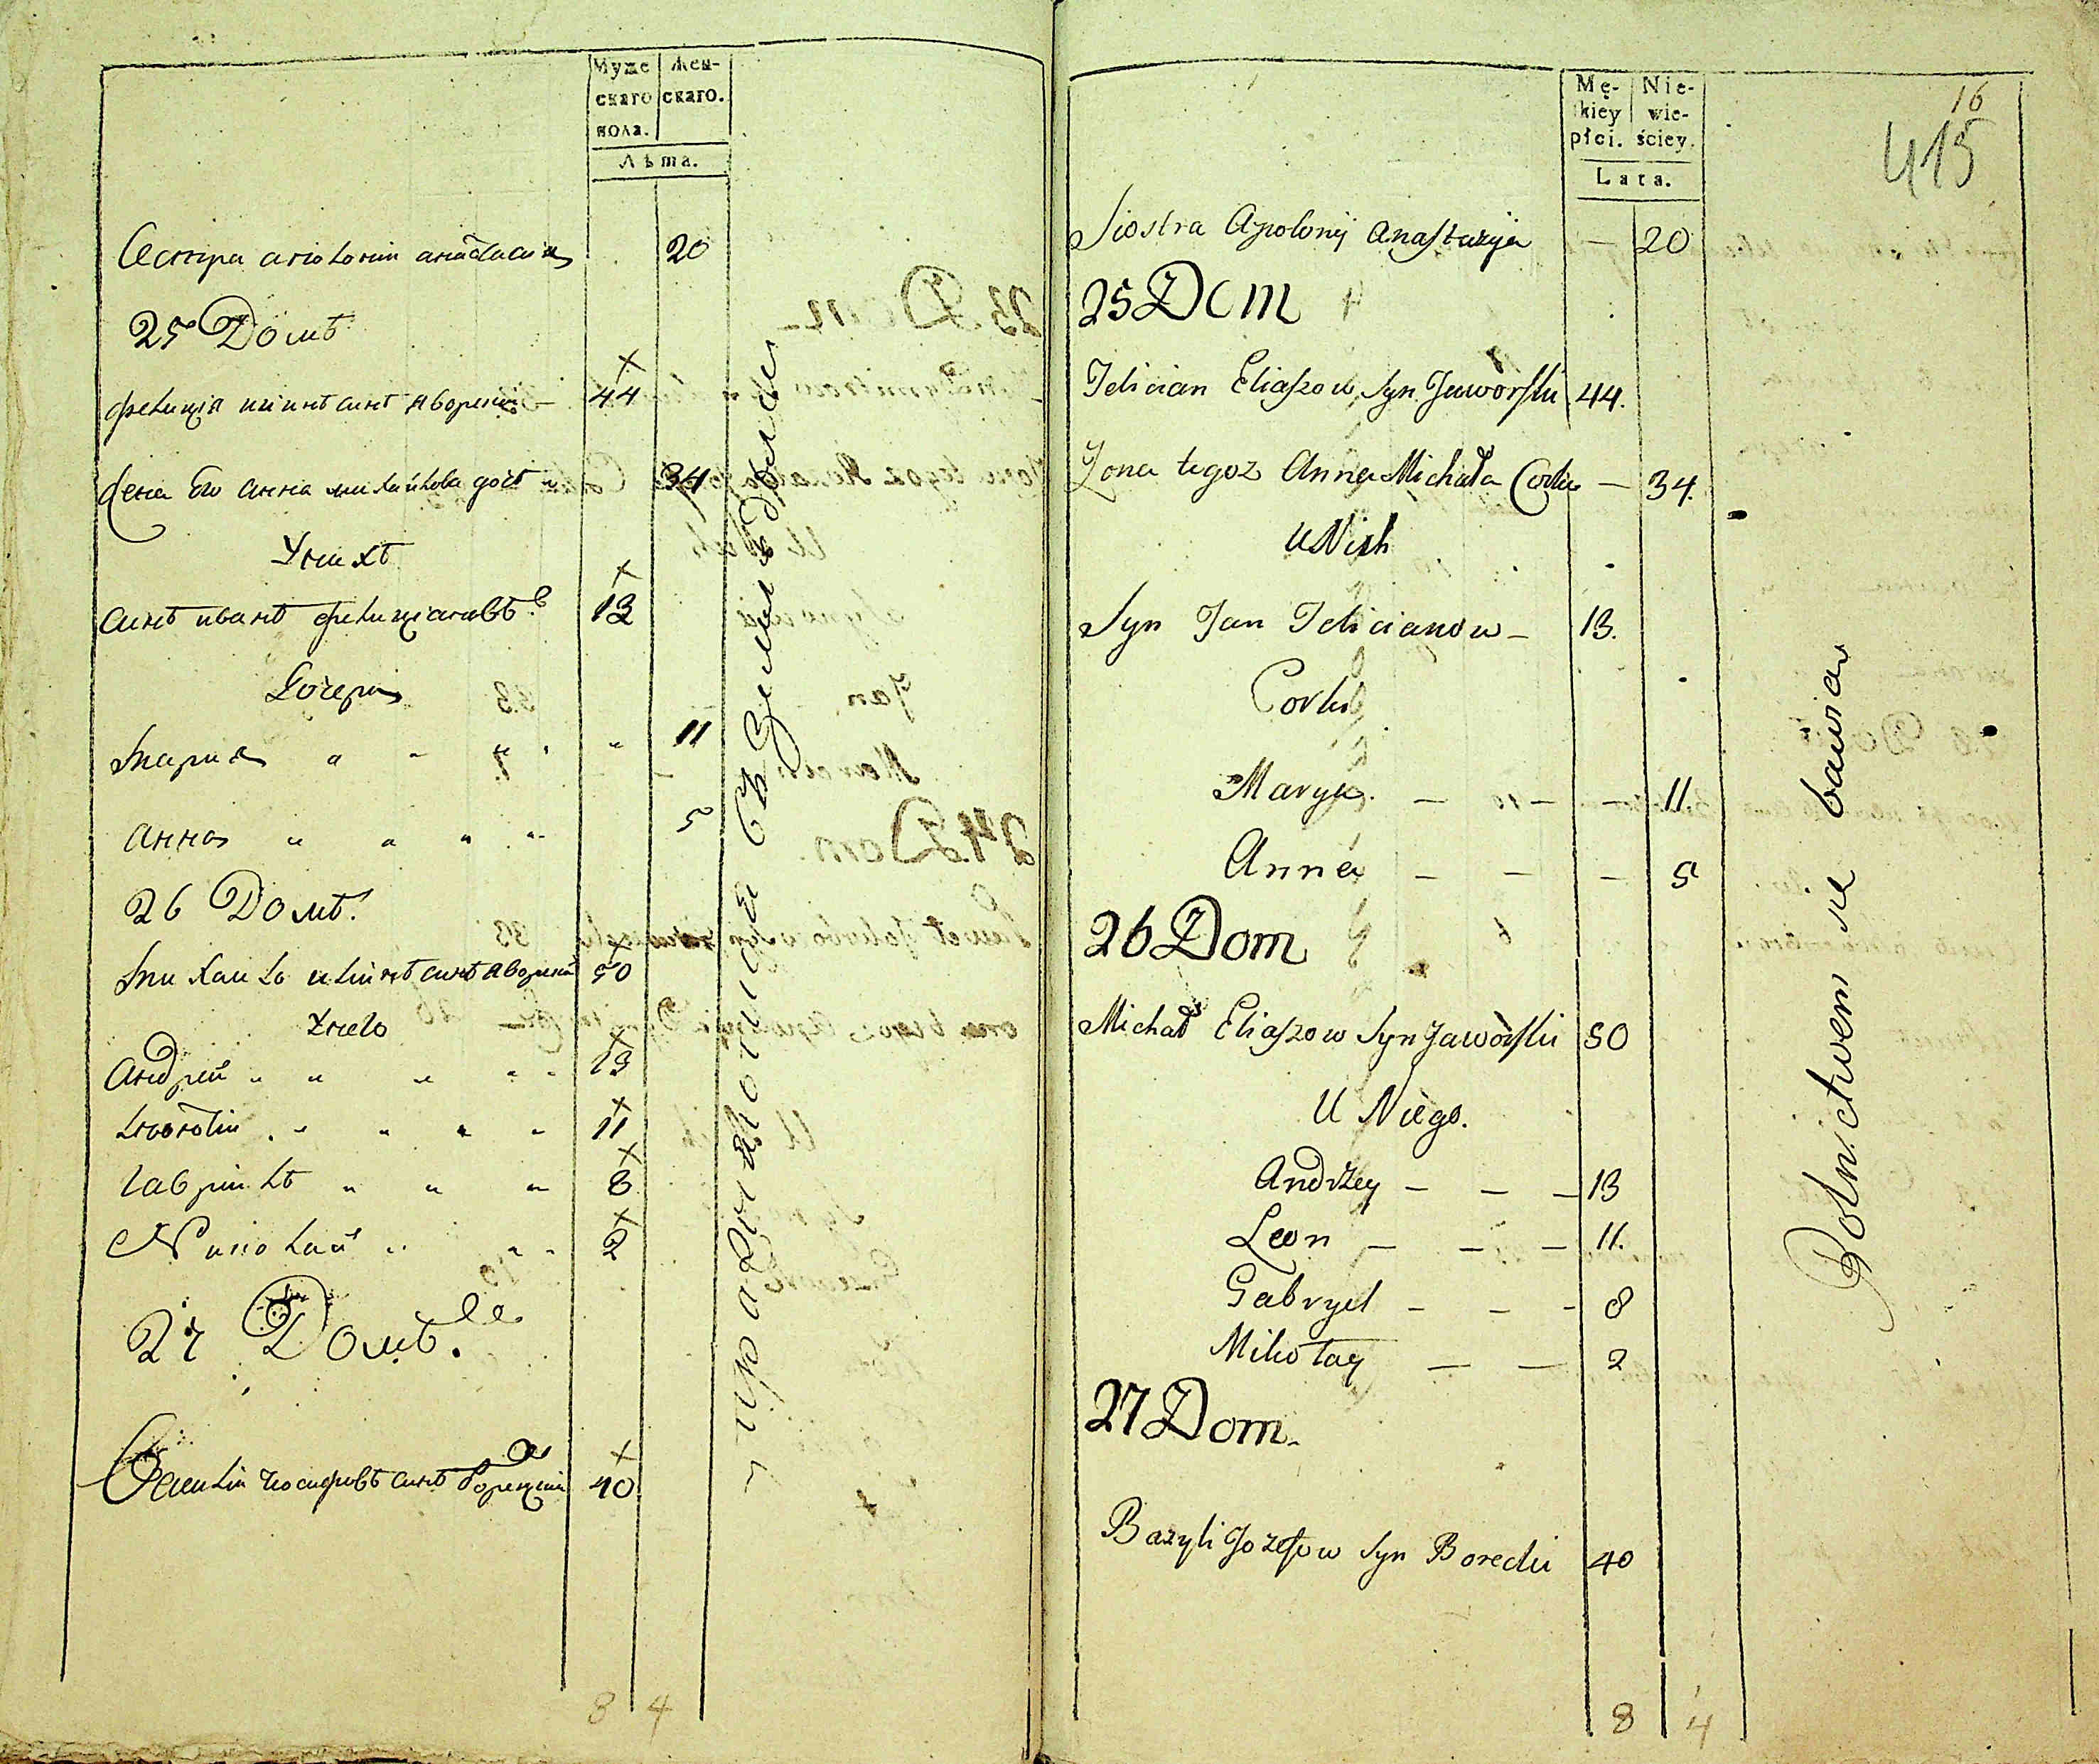 Муже
скаго
пола.
Жен-
скаго.
Лѣта.
Сестра аполонии анастасия 20
25 Домъ
фелиція илинъ синъ Яворский 44
Жена Его Анна михайлова дочь 34
У нихъ
Синъ иванъ фелиціановъ 13
Дочери
Мария 11
Анна 5
26 Домъ.
Михайло илинъ синъ Яворский 50
У него
Андрей 13
11
Гаврило 8
Николай 2
27 Домъ.
Василий Иосифовъ синъ Борецкий 40
8 4
упражняются въ земледелии
Mę-
kiey
płci.
Nie-
wie-
ściey.
Lata.
16
415
Siostra Apolonij Anastazyja — 20
25 Dom
Felician Eliaszow Syn Jaworski 44.
Zona tegoz Anna Michała Corka — 34.
U Nich
Syn Jan Felicianow — 13.
Corki
Marya. — — — 11.
Anna — — — 5
26 Dom
Michał Eliaszow Syn Jaworski 50
U Niego.
Andrzey — — — 13
Leon — — — 11.
Gabryel — — — 8
Mikołay — — 2
27 Dom.
Bazyli Jozefow Syn Borecki 40
8 4
Rolnictwem sie bawia